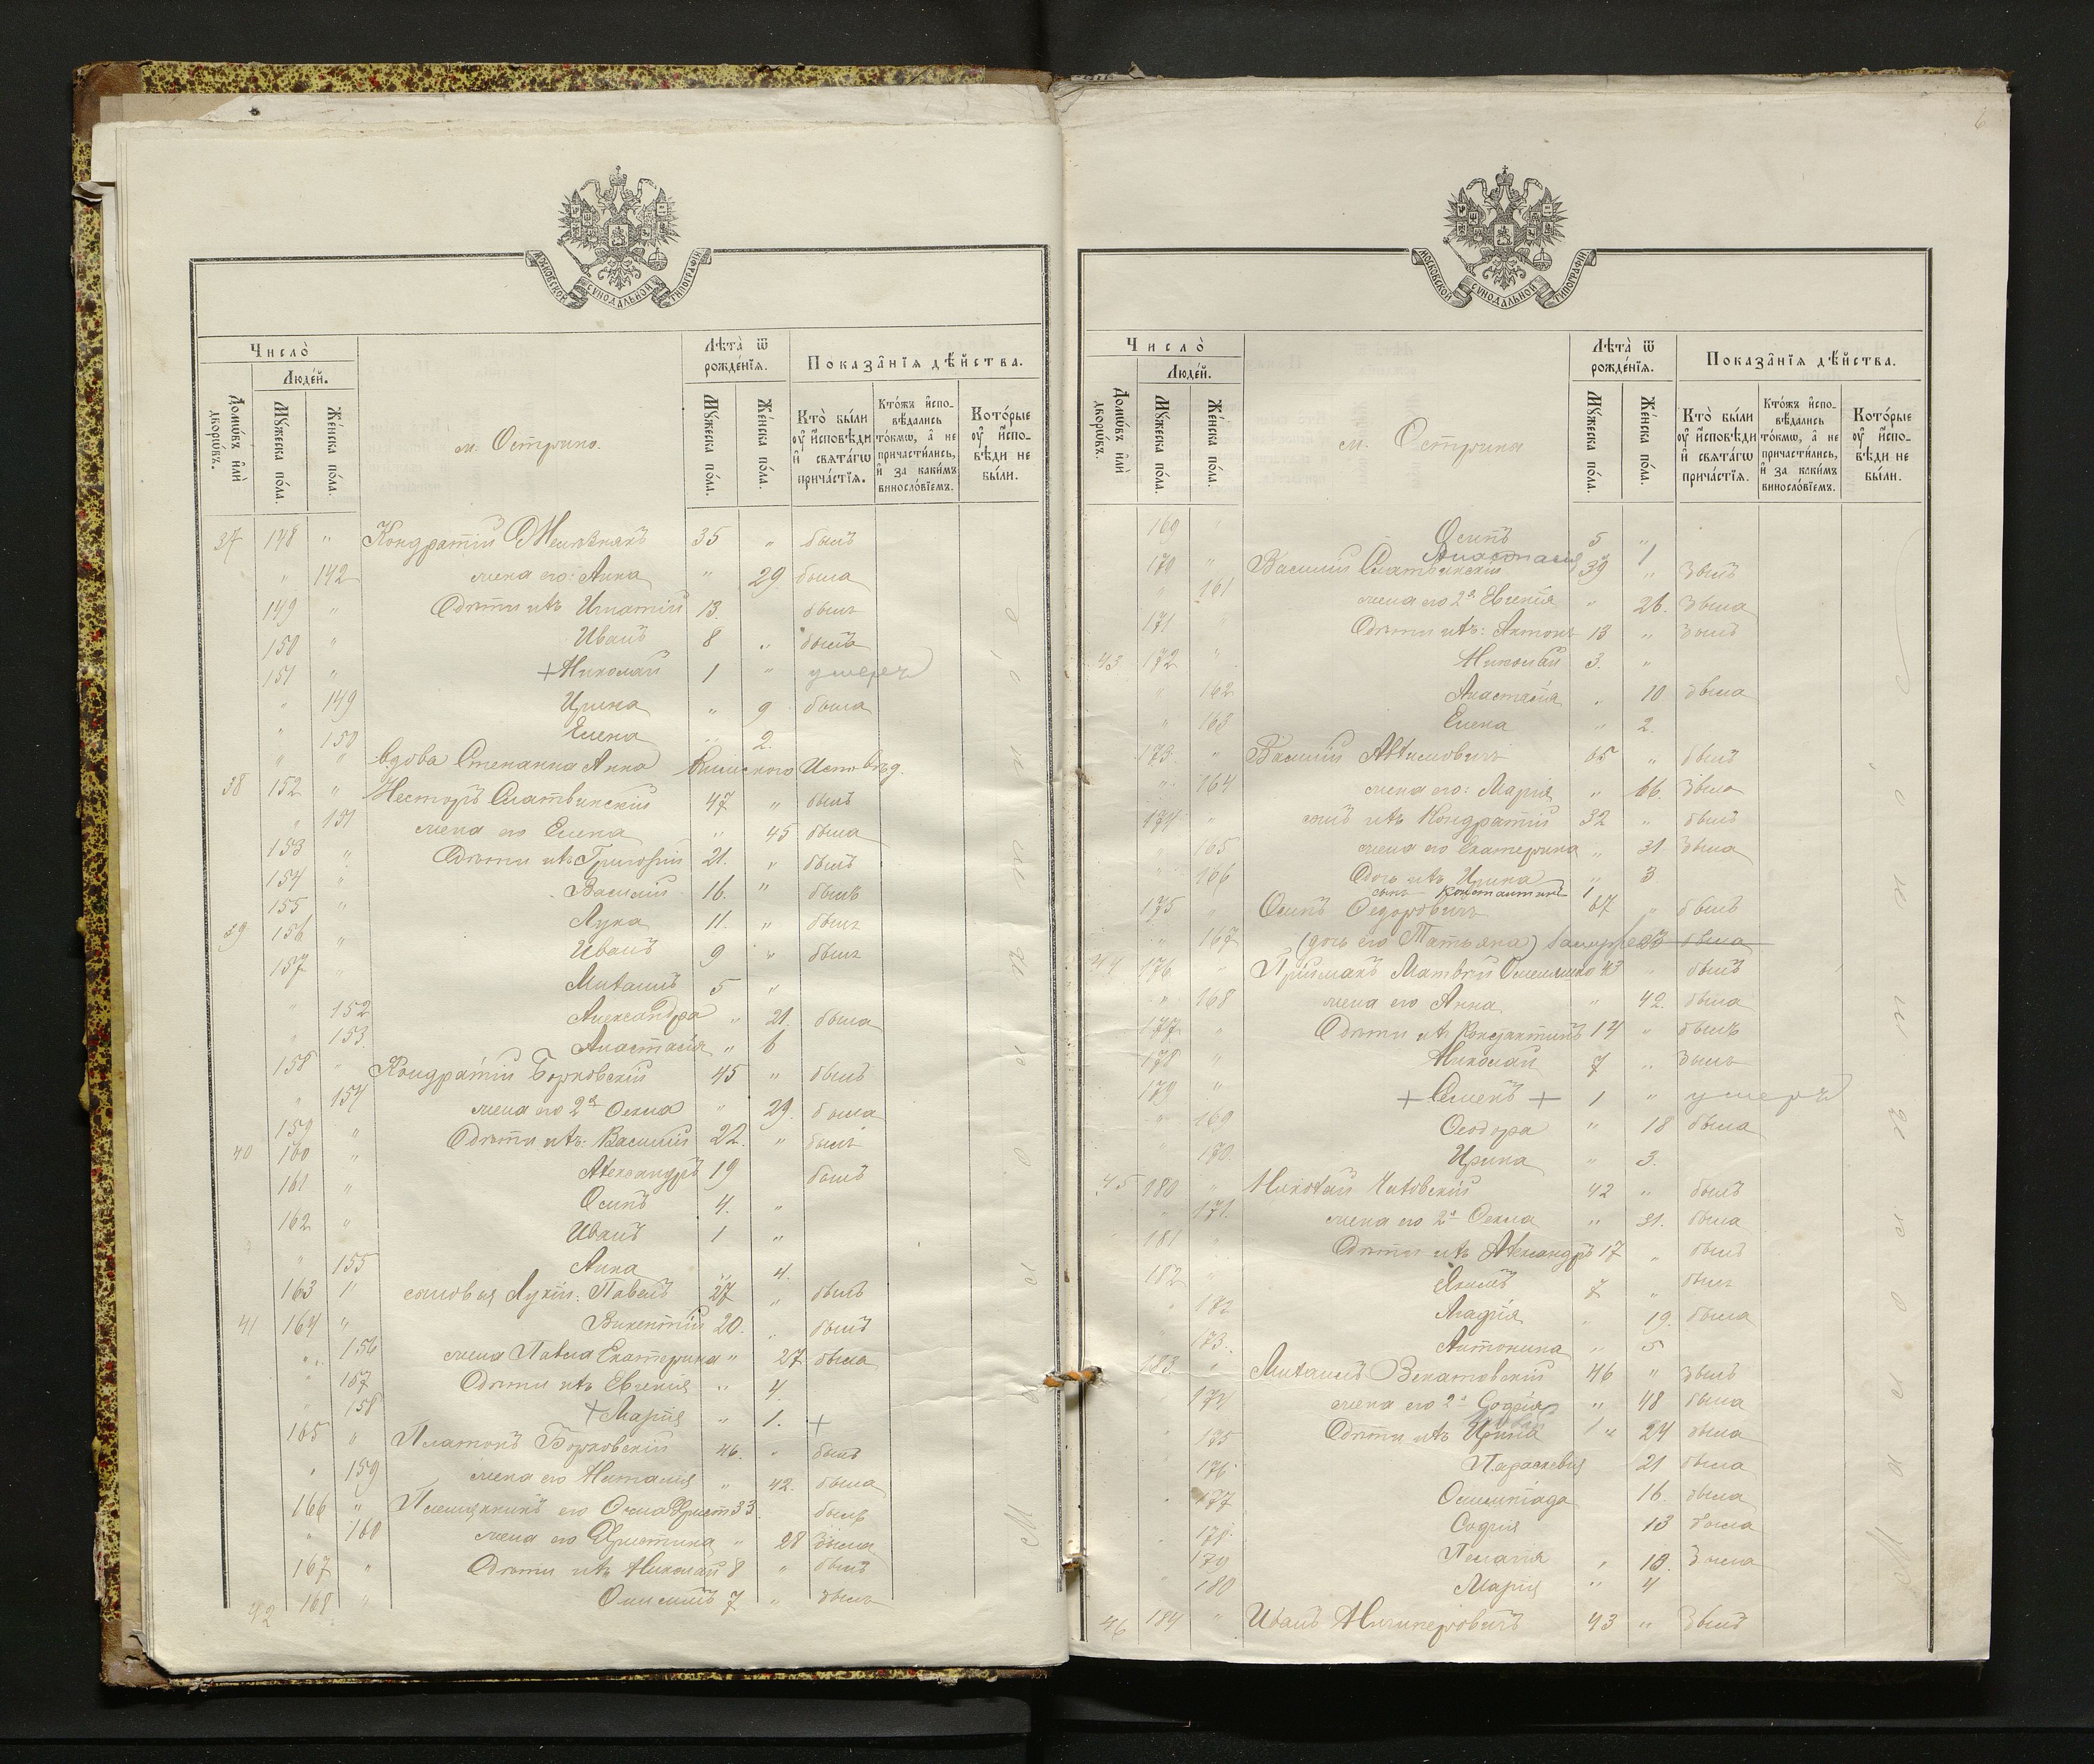 МОСКОВСКОЙ СУНОДАЛЬНОЙ ТИПОГРАФІИ
Число̀
Люде́й.
Домѡ́въ и҆лѝ дворѡ́въ.
Мꙋ́жеска по́ла.
Же́нска по́ла.
м. Острино.
Лѣта̀ ѿ рожде́нїѧ.
Мꙋ́жеска по́ла.
Же́нска по́ла.
Показа̑нїѧ дѣ́йства.
Кто̀ бы́ли оу҆ и҆сповѣ́ди и҆ свѧта́гѡ прича́стїѧ.
Кто́жъ и҆сповѣ́дались то́кмѡ, а҆ не причасти́лись, и҆ за каки́мъ винослѡ́вїемъ.
Кото́рые оу҆ и҆сповѣ́ди не бы́ли.
37 148 " Кондратій 35 " былъ
" 142 жена его: Анна " 29 была
149 " Дѣти ихъ Игнатій 13. былъ
150 " Иванъ 8 " былъ
151 " + Николай 1 " умеръ
" 149 Ирина " 9 была
" 150 Елена " 2.
" " Вдова Степанна Анна
38 152 " Несторъ Сматвинскій 47 " былъ
" 151 жена его Елена " 45 была
153 " Дѣти ихъ Григорій 21. " былъ
154 " Василій 16. " былъ
155 " Лука 11. " былъ
39 156 " Иванъ 9 " былъ
157 " Михаилъ 5 "
" 152 Александра " 21. была
" 153. Анастасія " 6
158 " Кондратій Борковскій 45 " былъ
" 154 жена его 2я Оекла " 29. была
159 " Дѣти ихъ: Василій 22. " былъ
40 160 " Александръ 19 былъ
161 " Осипъ 4. "
162 " Иванъ 1 "
" 155 Анна " 4.
163 " сыновья Луки: Павелъ 27 " былъ
41 164 " Викентій 20. " былъ
" 156 жена Павла Екатерина " 27 была
" 157 Дѣти ихъ Евгенія " 4
" 158 + Марія " 1. +
165 " Платонъ Борковскій 46. " былъ
" 159 жена его Наталія " 42. была
166 " Племянникъ его 33. былъ
" 160 жена его Христина " 28 была
167 " Дѣти ихъ Николай 8 " былъ
42 168 " Онисимъ 7 " былъ
6
МОСКОВСКОЙ СУНОДАЛЬНОЙ ТИПОГРАФІИ
Число̀
Люде́й.
Домѡ́въ и҆лѝ дворѡ́въ.
Мꙋ́жеска по́ла.
Же́нска по́ла.
м. Острина
Лѣта̀ ѿ рожде́нїѧ.
Мꙋ́жеска по́ла.
Же́нска по́ла.
Показа̑нїѧ дѣ́йства.
Кто̀ бы́ли оу҆ и҆сповѣ́ди и҆ свѧта́гѡ прича́стїѧ.
Кто́жъ и҆сповѣ́дались то́кмѡ, а҆ не причасти́лись, и҆ за каки́мъ винослѡ́вїемъ.
Кото́рые оу҆ и҆сповѣ́ди не бы́ли.
169 " Осипъ 5 "
Анастасія 1
170 " Василій Сматвинскій 39 " былъ
" 161 жена его 2я Евгенія " 26. была
171 " Дѣти ихъ: Антонъ 13 " былъ
43 172 " Николай 3. "
" 162 Анастасія " 10 была
" 163 Елена " 2.
173 " Василій 65 " былъ
" 164 жена его: Марія " 66. была
174 " сынъ ихъ Кондратій 32 " былъ
" 165 жена его Екатерина " 31 была
" 166 Дочь ихъ Ирина " 3
сынъ Константинъ 1
175 " Осипъ Федоровичъ 67 " былъ
" 167 (дочь его Татьяна) была
44 176 " Приймакъ Матвѣй 43 " былъ
" 168 жена его Анна " 42. была
177 " Дѣти ихъ 14 " былъ
178 " Николай 7 " былъ
179 " + Семенъ + 1 " умеръ
" 169 Оеодора " 18 была
" 170 Ирина " 3.
45 180 " Николай 42 " былъ
" 171. жена его 2я Оекла " 31. была
181 " Дѣти ихъ Александръ 17 " былъ
182 " Якимъ 7 " былъ
" 172 Агафія " 19. была
173. Антонина " 5
183 " Михаилъ 46 " былъ
" 174 жена его 2я Софія " 48 была
" 175 Дѣти ихъ Ирина " 24 была
176 Параскевія 21 была
" 177 Олимпіада 16. была
" 178 Софія 13 была
179 Пелагія " 10. была
180 Марія " 4
46 184 " Иванъ Ничипоровичъ 43 " былъ